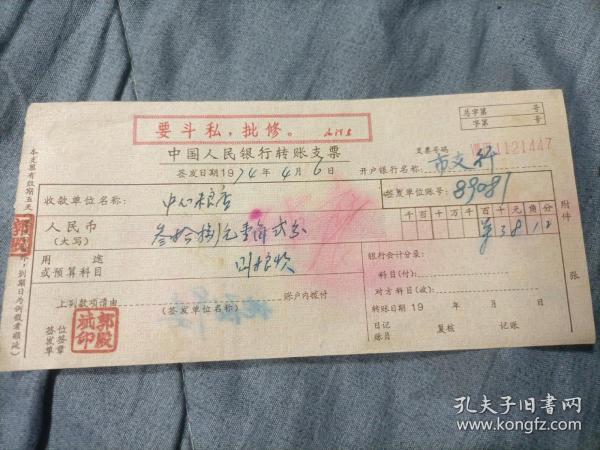 总字第 号
字第 号
要斗私，批修。
中国人民银行转账支票
支票号码 1121447
签发日期1974年4月6日
开户银行名称：市支行
本支票有效期五天
收款单位名称：中心粮店
签发单位账号：89081
人民币
(大写)
叁拾捌元壹角贰分
千百十万千百十元角分
¥38.12
用途
或预算科目
回粮款
银行会计分录：
科目(付)：
对方科目(收)：
上列款项请由 账户内拨付
(签发单位名称)
转账日期19 年 月 日
日记账员 复核 记账
签发单位签章
附件 张
郭殿斌印
孔夫子旧书网
www.kongfz.com